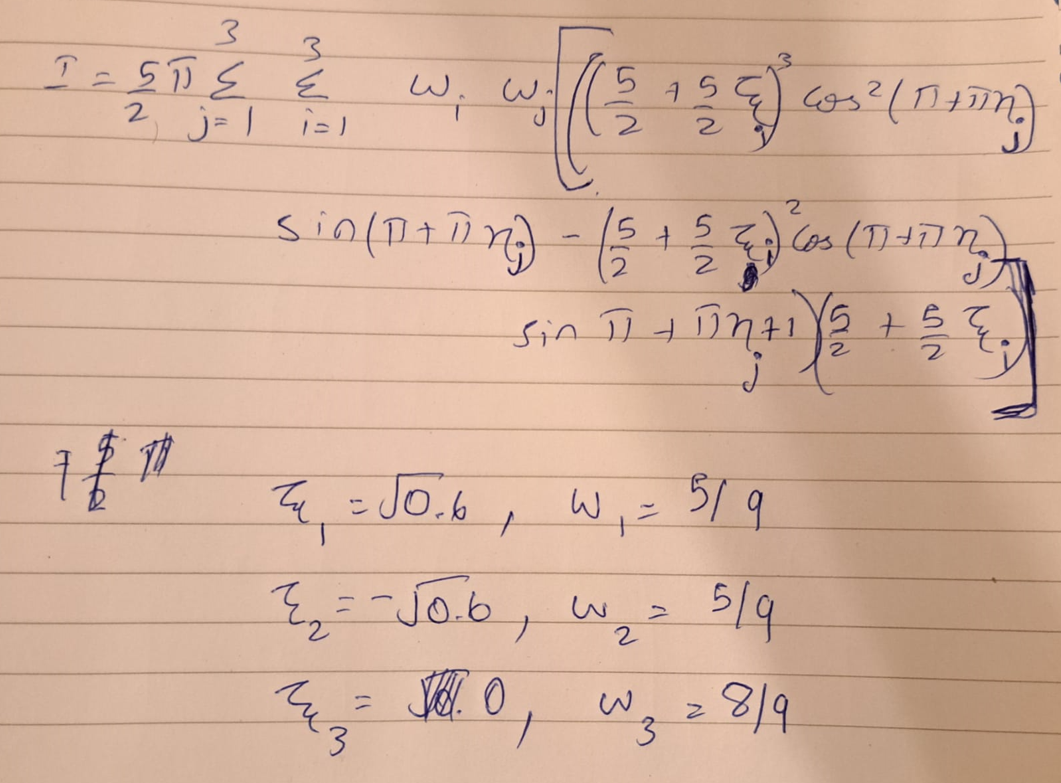 I = 5/2 π Σ_{j=1}^{3} Σ_{i=1}^{3} ω_i ω_j [((5/2 + 5/2 ξ_i)^3 cos^2(π+πη_j)
sin(π+πη_j) - (5/2 + 5/2 ξ_i)^2 cos(π+πη_j)
sin π + πη_j+1)(5/2 + 5/2 ξ_i)]
ξ_1 = √0.6, ω_1 = 5/9
ξ_2 = -√0.6, ω_2 = 5/9
ξ_3 = 0, ω_3 = 8/9